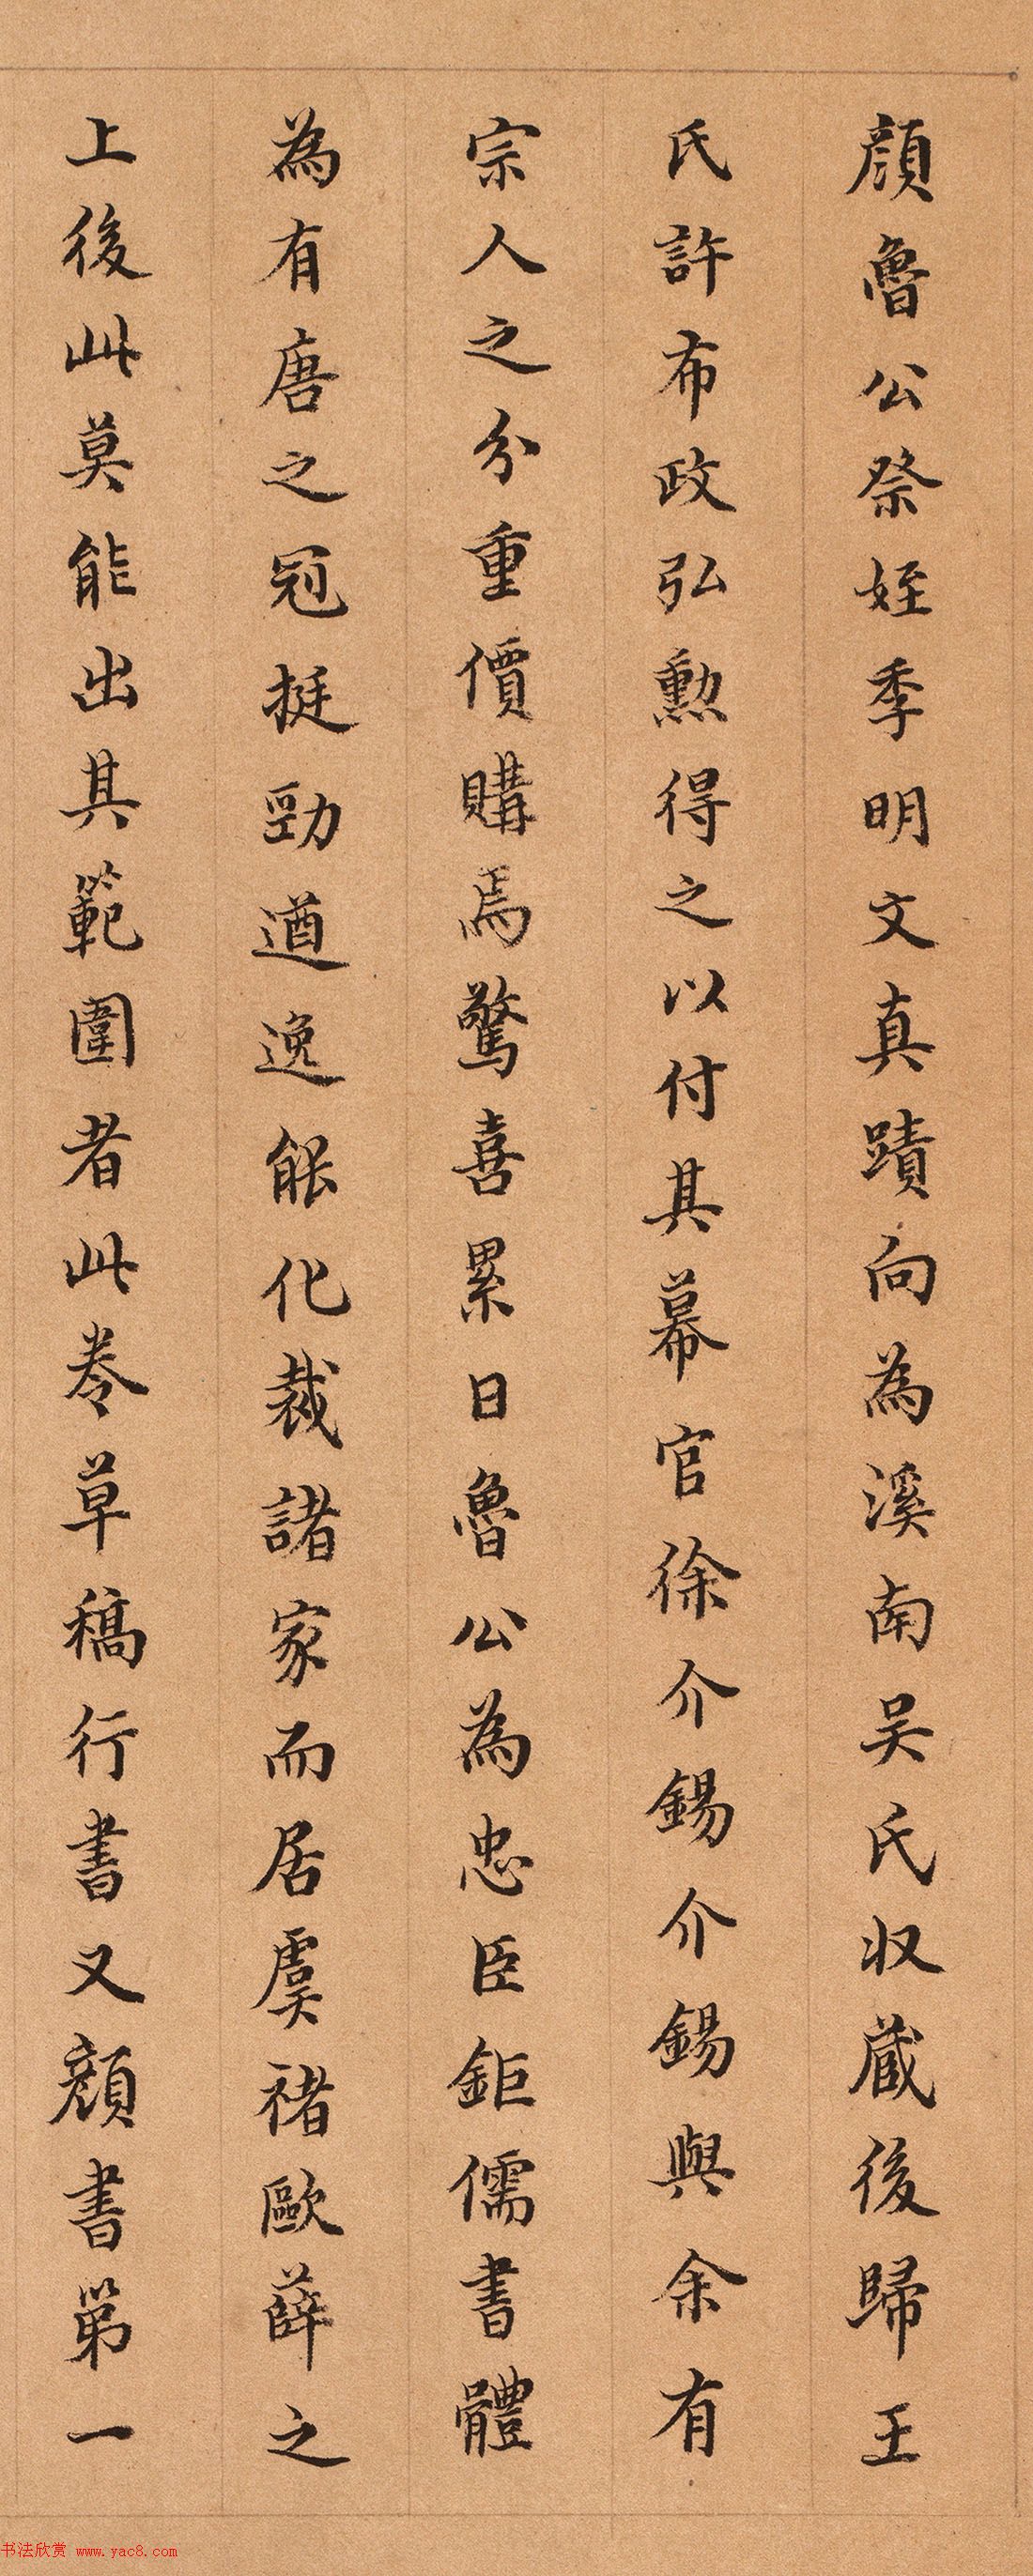 顔魯公祭姪季明文真蹟向為溪南吴氏收蔵後歸王
氏許布政弘勲得之以付其幕官徐介錫介錫與余有
宗人之分重價購焉驚喜累日魯公為忠臣鉅儒書體
為有唐之冠挺勁遒逸能化裁諸家而居虞褚歐薛之
上後此莫能出其範圍者此卷草稿行書又顔書第一
书法欣赏 www.yac8.com